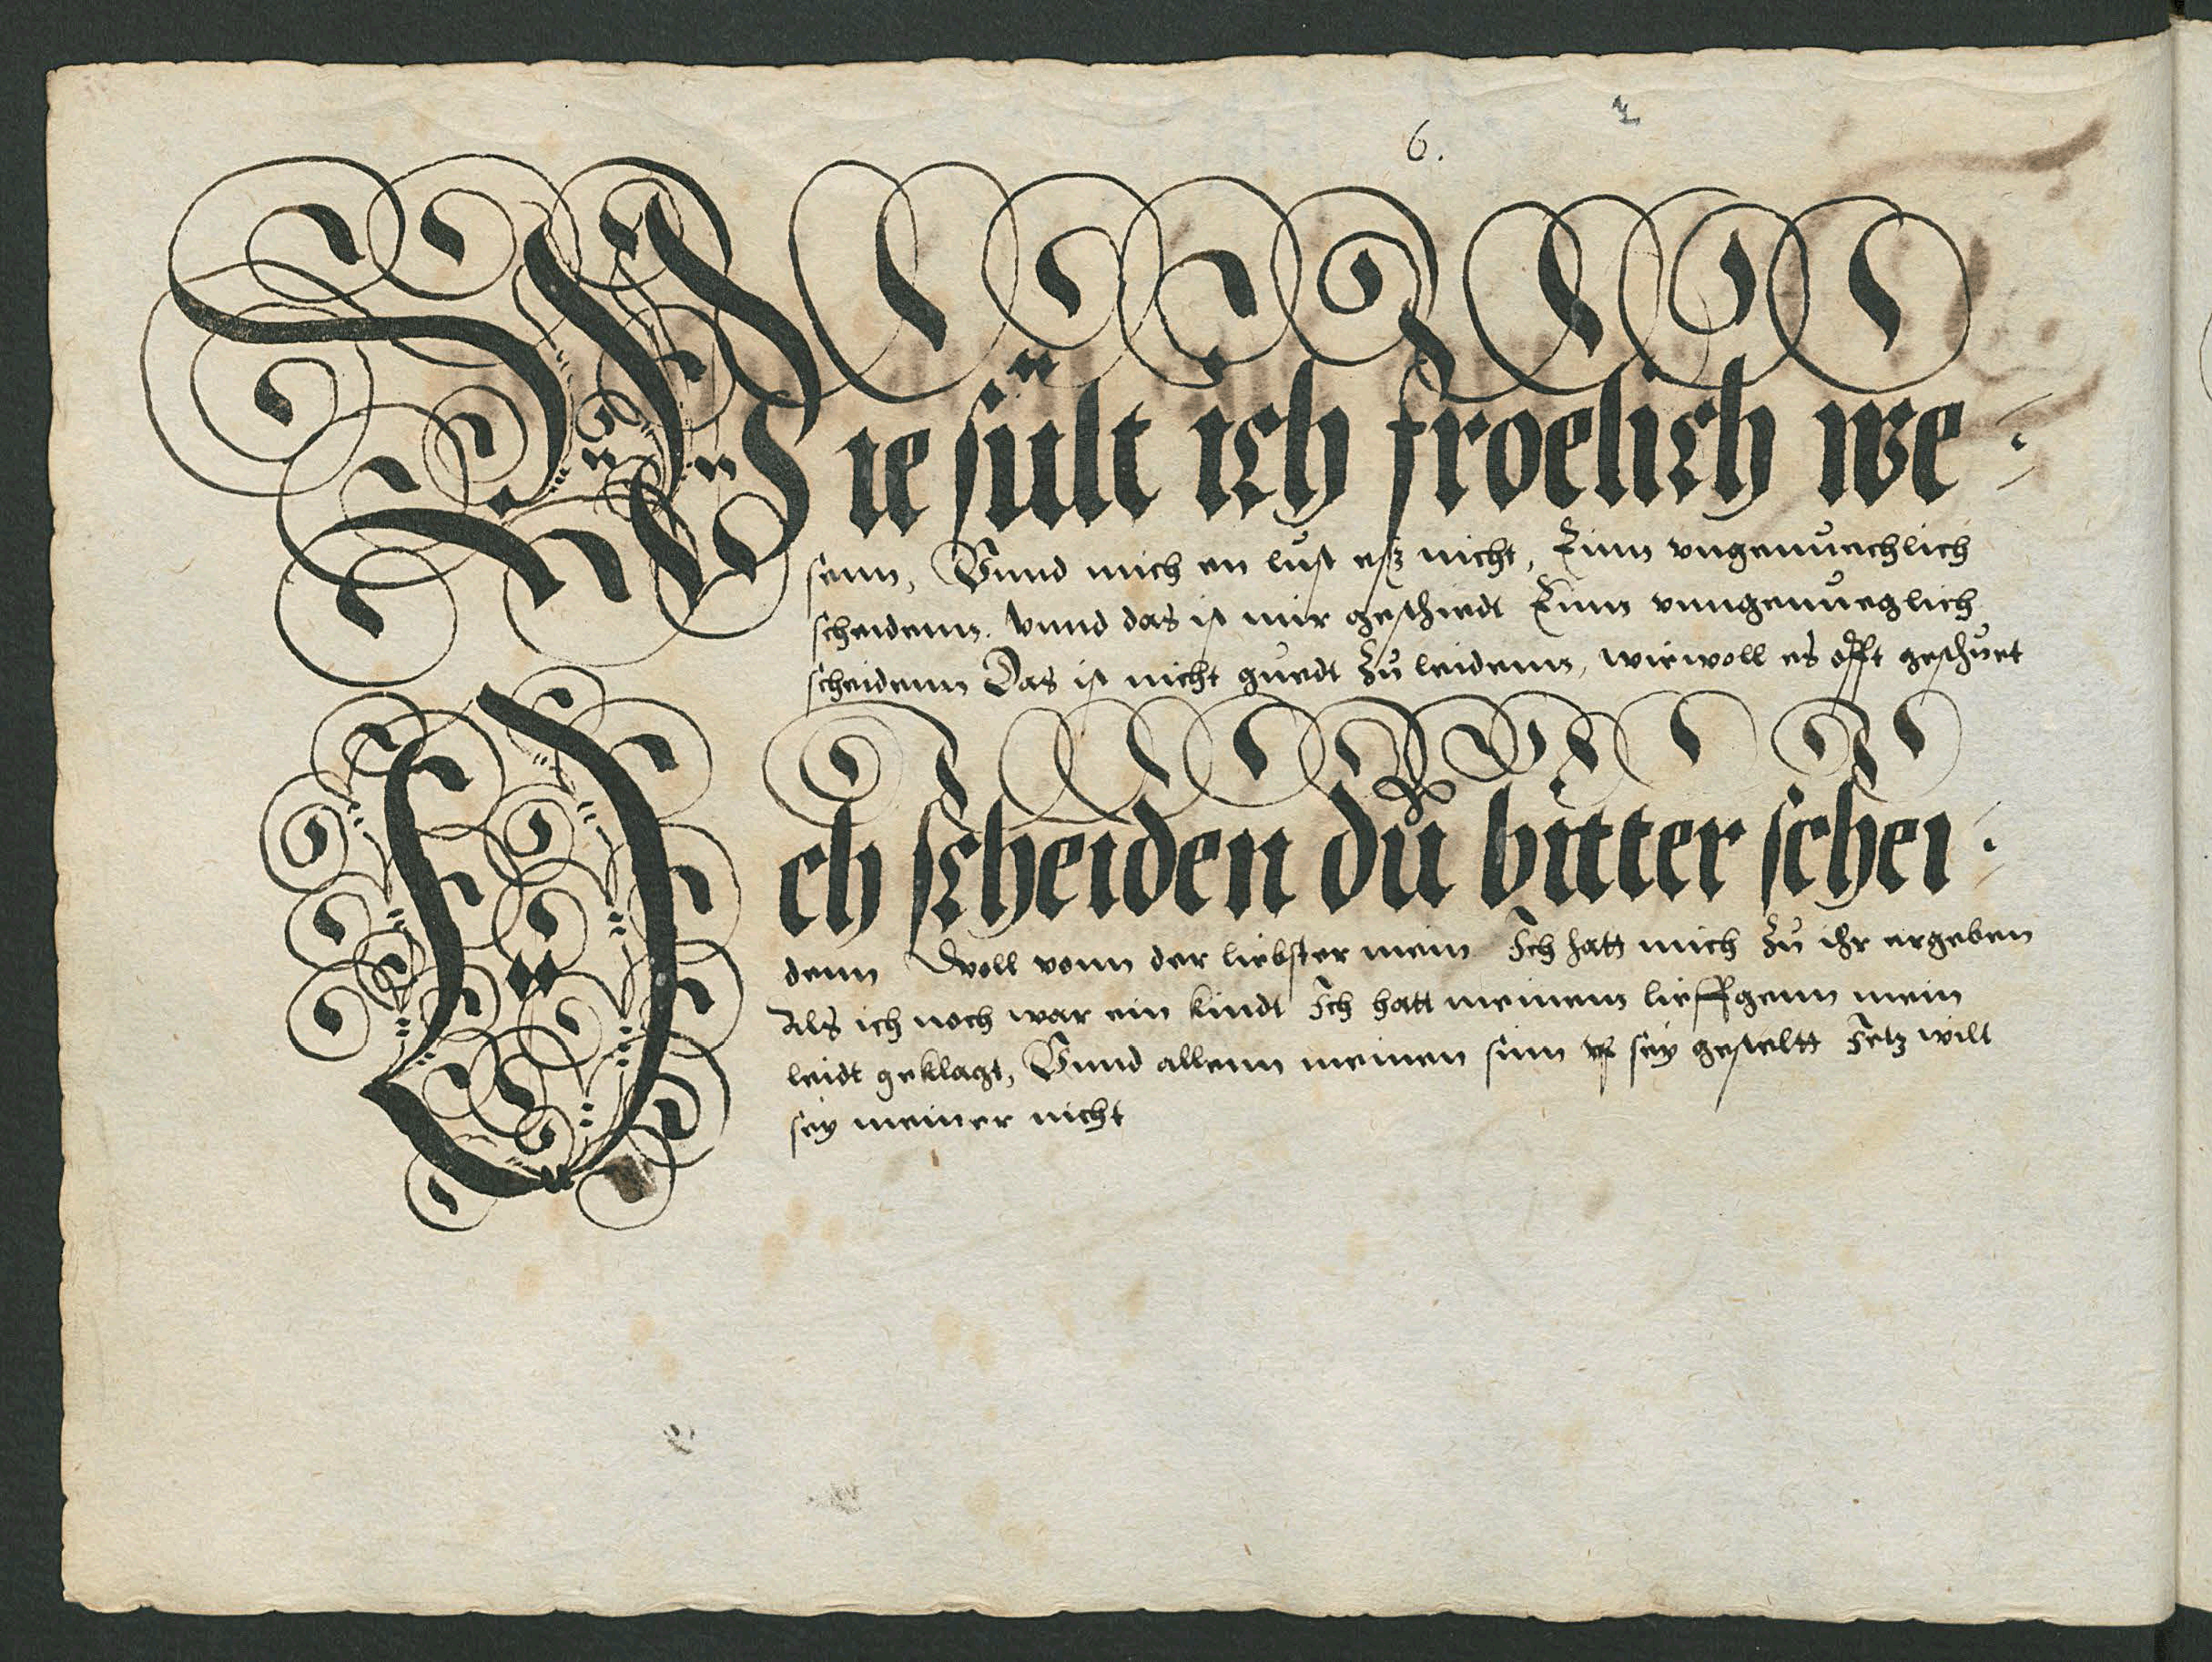 6.
Wie sült ich froelich we-
senn, Vnnd mich en lust esz nicht, Einn vngenuechlich
scheidenn. Vnnd das ist mir geschiedt Einn vnngenueglich
scheidenn Das ist nicht guedt zu leidenn, wiewoll es offt geschuet
Och scheiden du bitter schei-
denn Woll vonn der liebster mein Ich hatt mich zu ihr ergeben
Als ich noch war ein kindt Ich hatt meinem lieffgenn mein
leidt geklagt, Vnnd allenn meinen sinn vf sey gesteltt Jetz wilt
sey meiner nicht